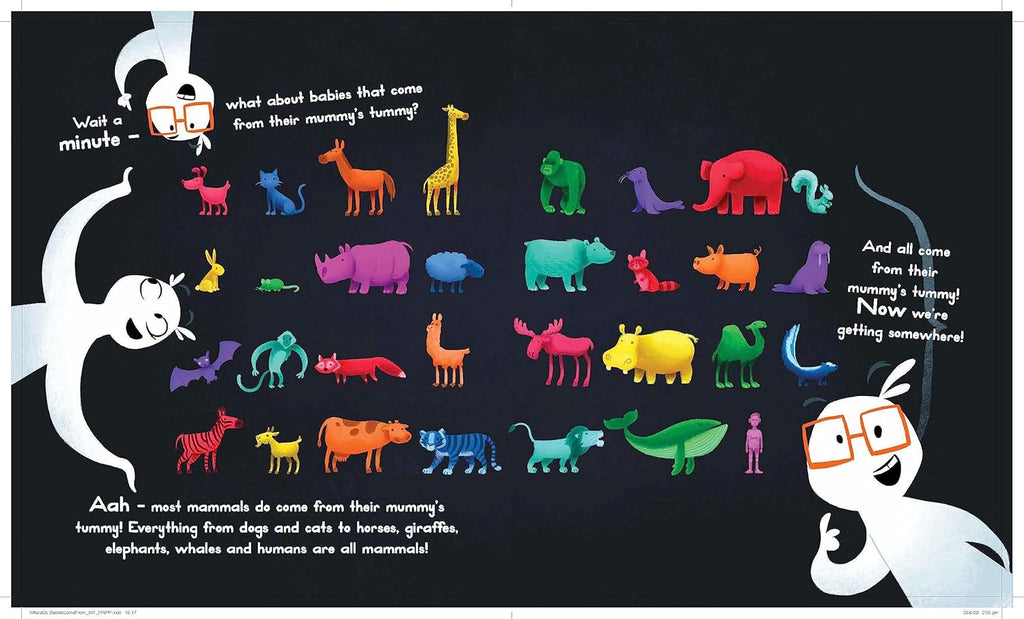 Wait a
minute –
what about babies that come
from their mummy's tummy?
And all come
from their
mummy's tummy!
Now we're
getting somewhere!
Aah – most mammals do come from their mummy's
tummy! Everything from dogs and cats to horses, giraffes,
elephants, whales and humans are all mammals!